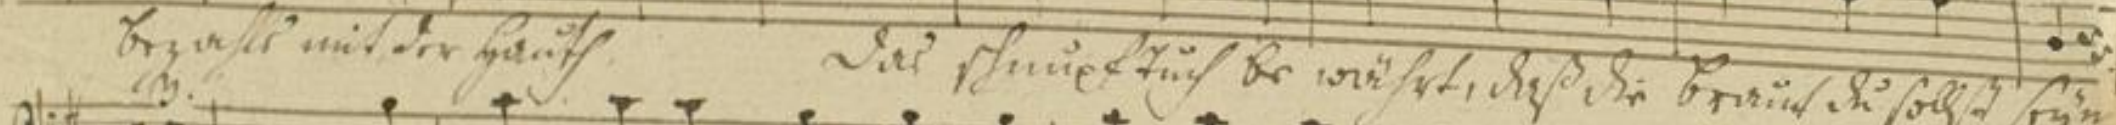 bezahls mit der Hauth. Das schnupftuch be währt, daß die braut du sollst seyn